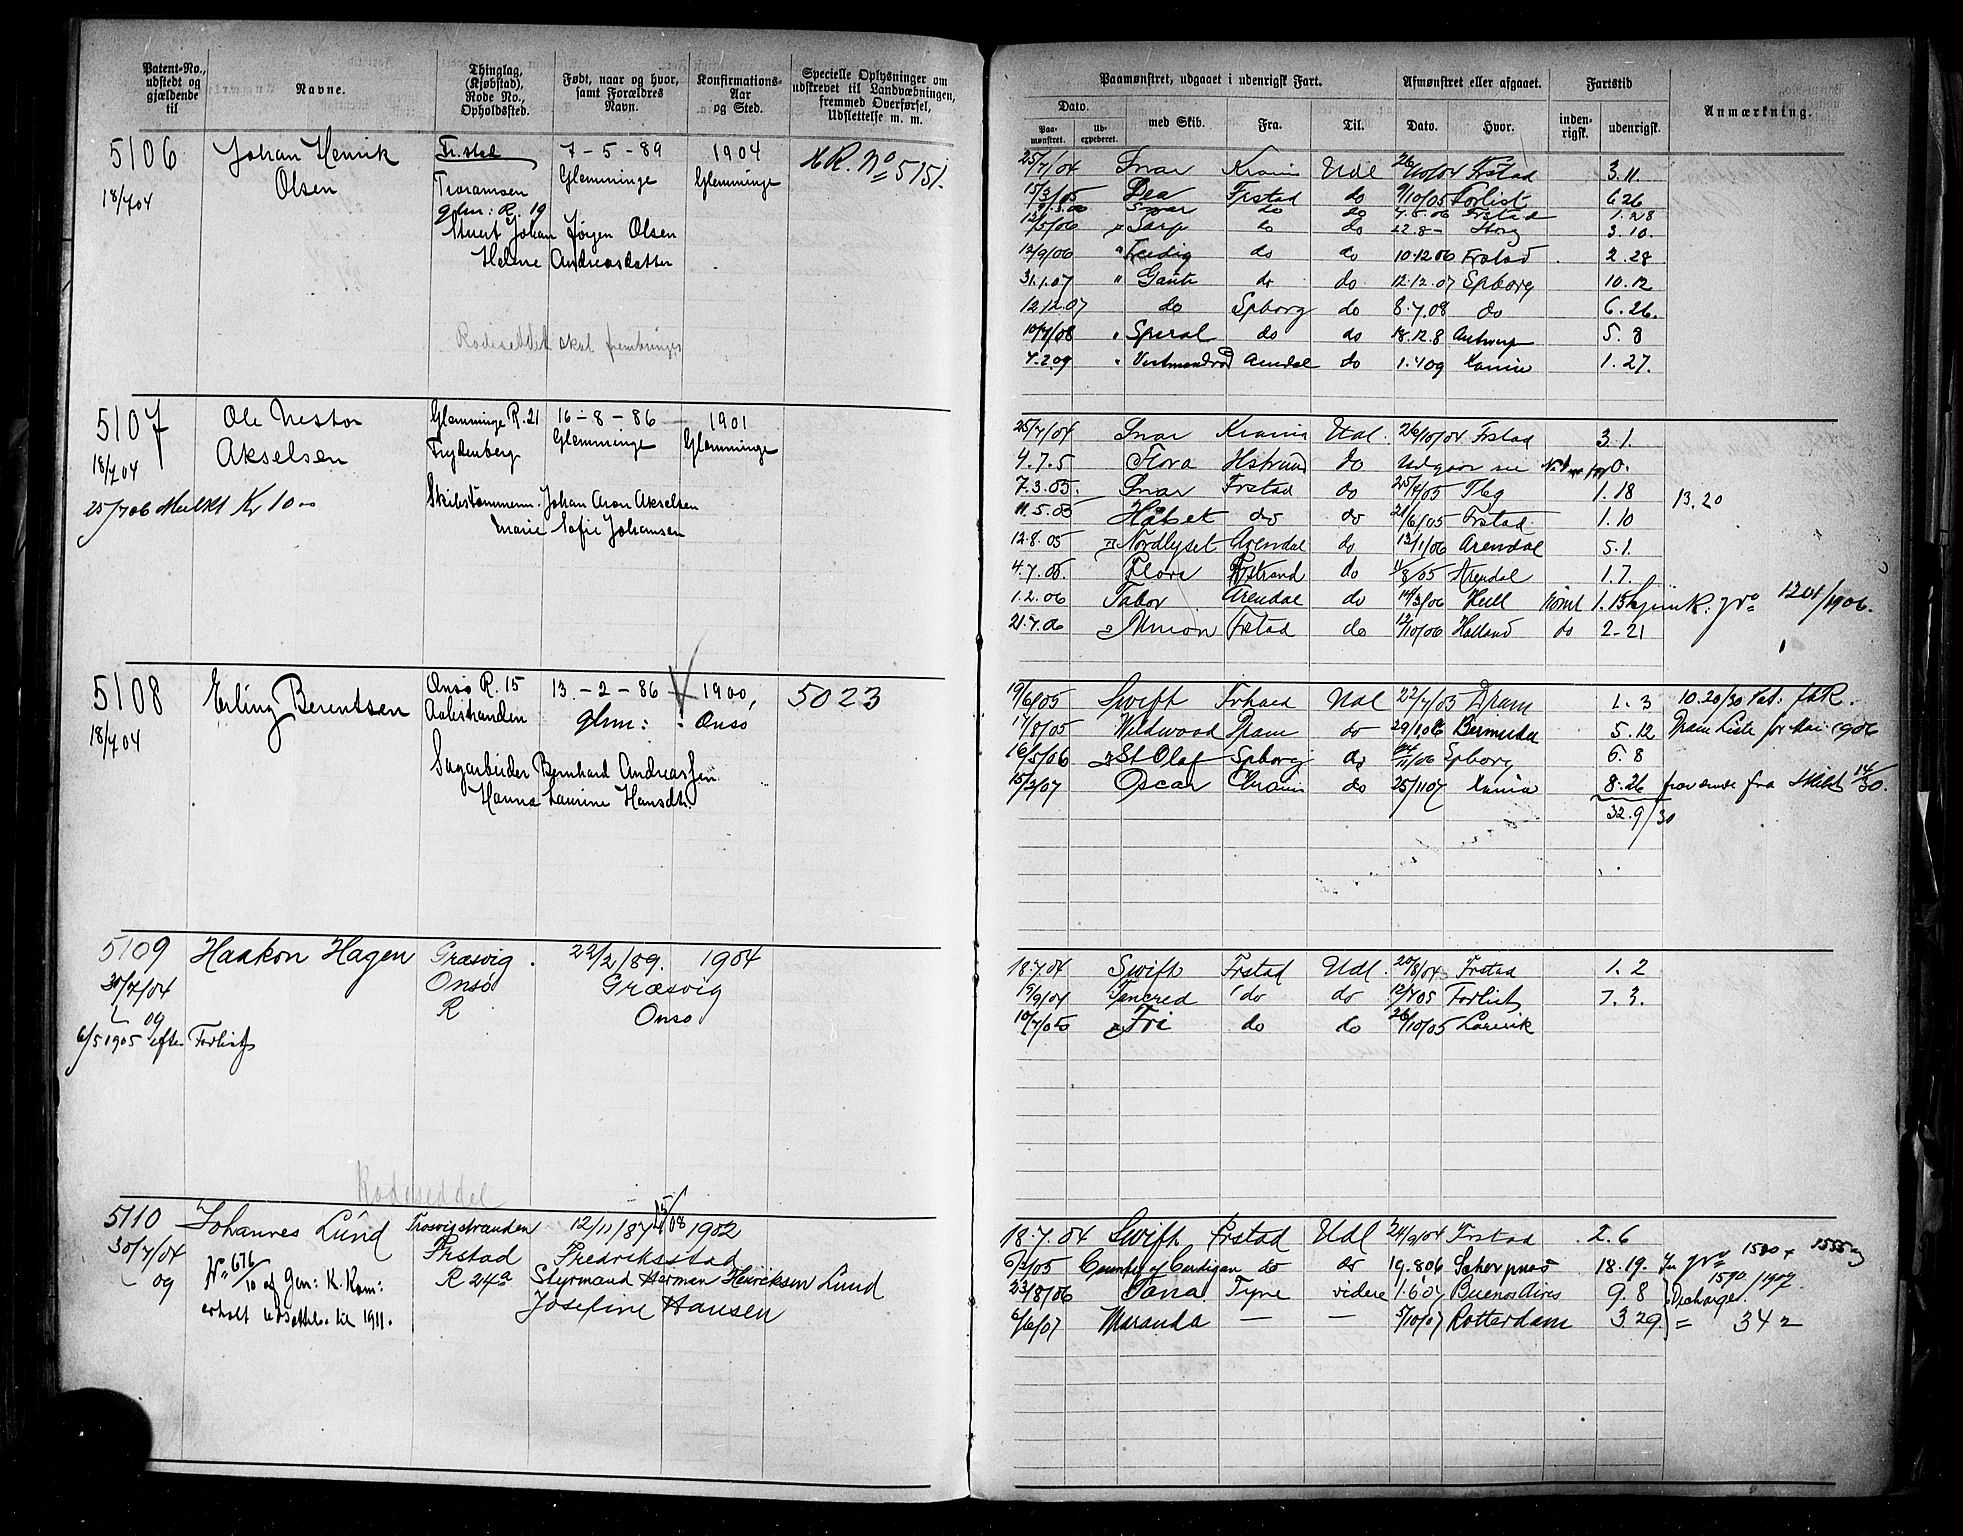 Patent-No., udstedt og gjældende til
Navne.
Thinglag, (Kjøbstad), Rode No., Opholdssted.
Født, naar og hvor, samt Forældres Navn.
Konfirmations-Aar og Sted.
Specielle Oplysninger om udskrevet til Landvæbningen, fremmed Overførsel, Udslettelse m. m.
5106
Johan Henrik
Olsen
18/7 04
Fr.stad
Glm: R. 19
7-5-89
Glemminge
1904
Glemminge
R. No 5151.
Johan Jørgen Olsen
Helene Andreasdatter
Rodeseddel skal frembringes
5107
Ole Nestor
Akselsen
18/7 04
25/7 06 Mulkt Kr 10
Glemminge R. 21
Trydenberg
16-8-86
Glemminge
1901
Glemminge
Skibstømmerm. Johan Aron Akselsen
Marie Sofie Johansen
5108
Erling Berentsen
18/7 04
Onsø R. 15
Aalestranden
13-2-86
Glm:
1900,
Onsø
5023
Sagarbeider Bernhard Andreassen
Hanna Laurine Hansdtr
5109
Haakon Hagen
30/7/04
09
6/5 1905 efter Forlist
Græsvig
Onsø
R
22/2/89.
Græsvig
Onsø
1904
Rodeseddel
5110
Johannes Lund
30/7/04
09
No 676/10 af Gen: K. Kom:
erholt Udsættelse til 1911.
Trosvigstranden
Frstad
R 24a
12/11/87
Fredriksstad
15/4 08
1902
Styrmand Herman Henriksen Lund
Josefine Hansen
Paamønstret, udgaaet i udenrigsk Fart.
Afmønstret eller afgaaet.
Fartstid
Anmærkning.
Dato.
Paamønstret.
Udexpederet.
med Skib.
Fra.
Til.
Dato.
Hvor.
indenrigsk.
udenrigsk.
25/7/04 Snar Krania Udl 26/10/04 Frstad 3.11
15/3/05 Dea Frstad do 9/10/05 Forlist 6.26
do do 7.5.06 Frstad 1.28
12/5/06 Sarp do do 22.8- 3.10.
12/9/06 Ferdig do do 10.12 06 Frstad 2.28
31.1.07 Gaute do do 12.12.07 Spborg 10.12
12.12.07 do Spborg do 8.7.08 do 6.26.
10/7/08 Spiral do do 18.12.8 Antwerp 5.8
4.2.09 Arendal do 1.4 09 Kania 1.27.
25/7/04 Snar Krania Udl. 26/10/04 Frstad 3.1.
4.7.5 Flora do Udgaar se
7.3.05. Snar Frstad do 25/4/05 Tbg 1.18 13.20
11.5.05 Håbet do do 21/6/05 Frstad 1.10
12.8.05 Nordlyset Arendal do 13/1/06 Arendal 5.1.
4.7.05. Flora do 11/8/05 Arendal 1.7.
1.2.06 Tabor Arendal do 14/3/06 Hull 1.13 No 1204/1906.
21.7.06 Union Frstad do 12/10/06 Holland do 2-21
19/6/05 Swift Frstad Udl 22/7/05 Dram 1.3
17/8/05 Wildwood Dram do 29/1 06 Bermuda 5.12 Dram Liste for Mai 1906
16/5/06 St Olaf Spborg do 24/11/06 Spborg 6.8
15/3/07 Oscar Chrania do 25/11 07 Kania 8.26
32.9/30
18.7.04 Swift Frstad Udl. 20/8/04 Frstad 1.2
19/9/04 Tancred do do 12/4 05 Forlist 7.3.
10/7/05 Fri do do 26/10/05 Larvik
18.7.04 Swift Frstad Udl 24/9/04 Frstad 2.6
6/2/05 County of Cardigan do do 19.8 06 18.19.
23/8/06 Tana Tyne videre 1.6 07 Buenos Aires 9.8 Decharge 1590/1907.
6/6/07 Maranda — — 5/10/07 Rotterdam 3.29 = 34 2